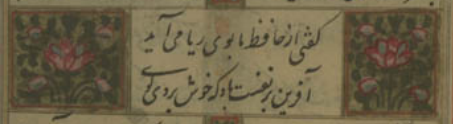 گفتی از حافظ ما بوی ریا می آید
آفرین بر نفست باد که خوش بردی بوی